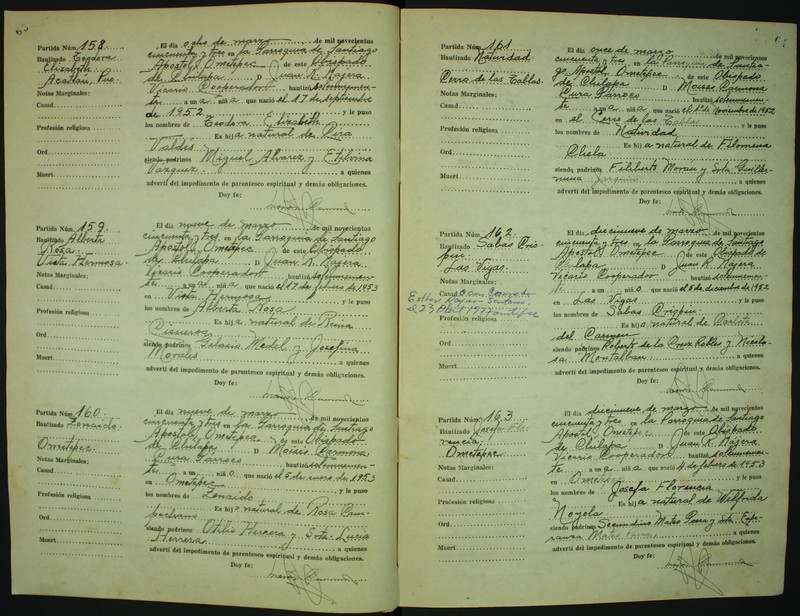 63
Partida Núm. 158
Bautizado Teodora
Elizabeth
Acatlán, Pue.
Notas Marginales:
Casad
Profesión religiosa
Ord
Muert
El día ocho de marzo de mil novecientos
cincuenta y tres en la Parroquia de Santiago
Apostol, Ometepec de este Obispado
de Chilapa D Juan R. Nájera
Vicario Cooperador bautizó solemnemen-
te a un a niñ a que nació el 17 de septiembre
de 1952 y le puso
los nombres de Teodora Elizabeth
Es hij a natural de
Valdés
siendo padrinos Miguel Alvarez y Etelvina
Vazquez a quienes
advertí del impedimento de parentesco espiritual y demás obligaciones.
Doy fe:
Partida Núm. 159
Bautizado Alberta
Rosa
Vista Hermosa
Notas Marginales:
Casad
Profesión religiosa
Ord
Muert
El día nueve de marzo de mil novecientos
cincuenta y tres en la Parroquia de Santiago
Apostol, Ometepec de este Obispado
de Chilapa D Juan R. Nájera
Vicario Cooperador bautizó solemnemen-
te a un a niñ a que nació el 17 de febrero de 1953
en Vista Hermosa y le puso
los nombres de Alberta Rosa
Es hij a natural de
Cisneros
siendo padrinos Medel y Josefina
Morales a quienes
advertí del impedimento de parentesco espiritual y demás obligaciones.
Doy fe:
Partida Núm. 160
Bautizado Zenaido
Ometepec
Notas Marginales:
Casad
Profesión religiosa
Ord
Muert
El día nueve de marzo de mil novecientos
cincuenta y tres en la Parroquia de Santiago
Apostol, Ometepec de este Obispado
de Chilapa D Moisés Carmona
Cura Párroco bautizó solemnemen-
te a un niñ o que nació el 5 de enero de 1953
en Ometepec y le puso
los nombres de Zenaido
Es hij o natural de Rosa
siendo padrinos Otilio Herrera y Srta. Lucia
Herrera a quienes
advertí del impedimento de parentesco espiritual y demás obligaciones.
Doy fe:
Partida Núm. 161
Bautizado Natividad
Cerro de las Tablas
Notas Marginales:
Casad
Profesión religiosa
Ord
Muert
El día once de marzo de mil novecientos
cincuenta y tres en la Parroquia de Santia-
go Apostol, Ometepec de este Obispado
de Chilapa D Moisés Carmona
Cura Párroco bautizó solemnemen-
te a un a niñ a que nació el 1° de Noviembre de 1952
en el Cerro de las Tablas y le puso
los nombres de Natividad
Es hij a natural de Filomena
Chela
siendo padrinos Filiberto Moran y Srta. Guiller-
mina a quienes
advertí del impedimento de parentesco espiritual y demás obligaciones.
Doy fe:
Partida Núm. 162
Bautizado Sabas Cris-
pin
Las Vigas
Notas Marginales:
Casad
Profesión religiosa
Ord
Muert
El día diecinueve de marzo de mil novecientos
cincuenta y tres en la Parroquia de Santiago
Apostol, Ometepec de este Obispado de
Chilapa D Juan R. Nájera
Vicario Cooperador bautizó solemnemen-
te a un niñ o que nació el 5 de diciembre de 1952
en Las Vigas y le puso
los nombres de Sabas Crispin
Es hij o natural de
del Carmen
siendo padrinos Roberto de la Cruz Robles y Nicola-
sa Montalban a quienes
advertí del impedimento de parentesco espiritual y demás obligaciones.
Doy fe:
Partida Núm. 163
Bautizado Josefa Flo-
rencia
Ometepec
Notas Marginales:
Casad
Profesión religiosa
Ord
Muert
El día diecinueve de marzo de mil novecientos
cincuenta y tres en la Parroquia de Santiago
Apostol, Ometepec de este Obispado
de Chilapa D Juan R. Nájera
Vicario Cooperador bautizó solemnemen-
te a un a niñ a que nació 4 de febrero de 1953
en Ometepec y le puso
los nombres de Josefa Florencia
Es hij a natural de Welfrida
Noyola
siendo padrinos Secundino Mateo Parra y Srta. Espe-
ranza Mateo Parra a quienes
advertí del impedimento de parentesco espiritual y demás obligaciones.
Doy fe: